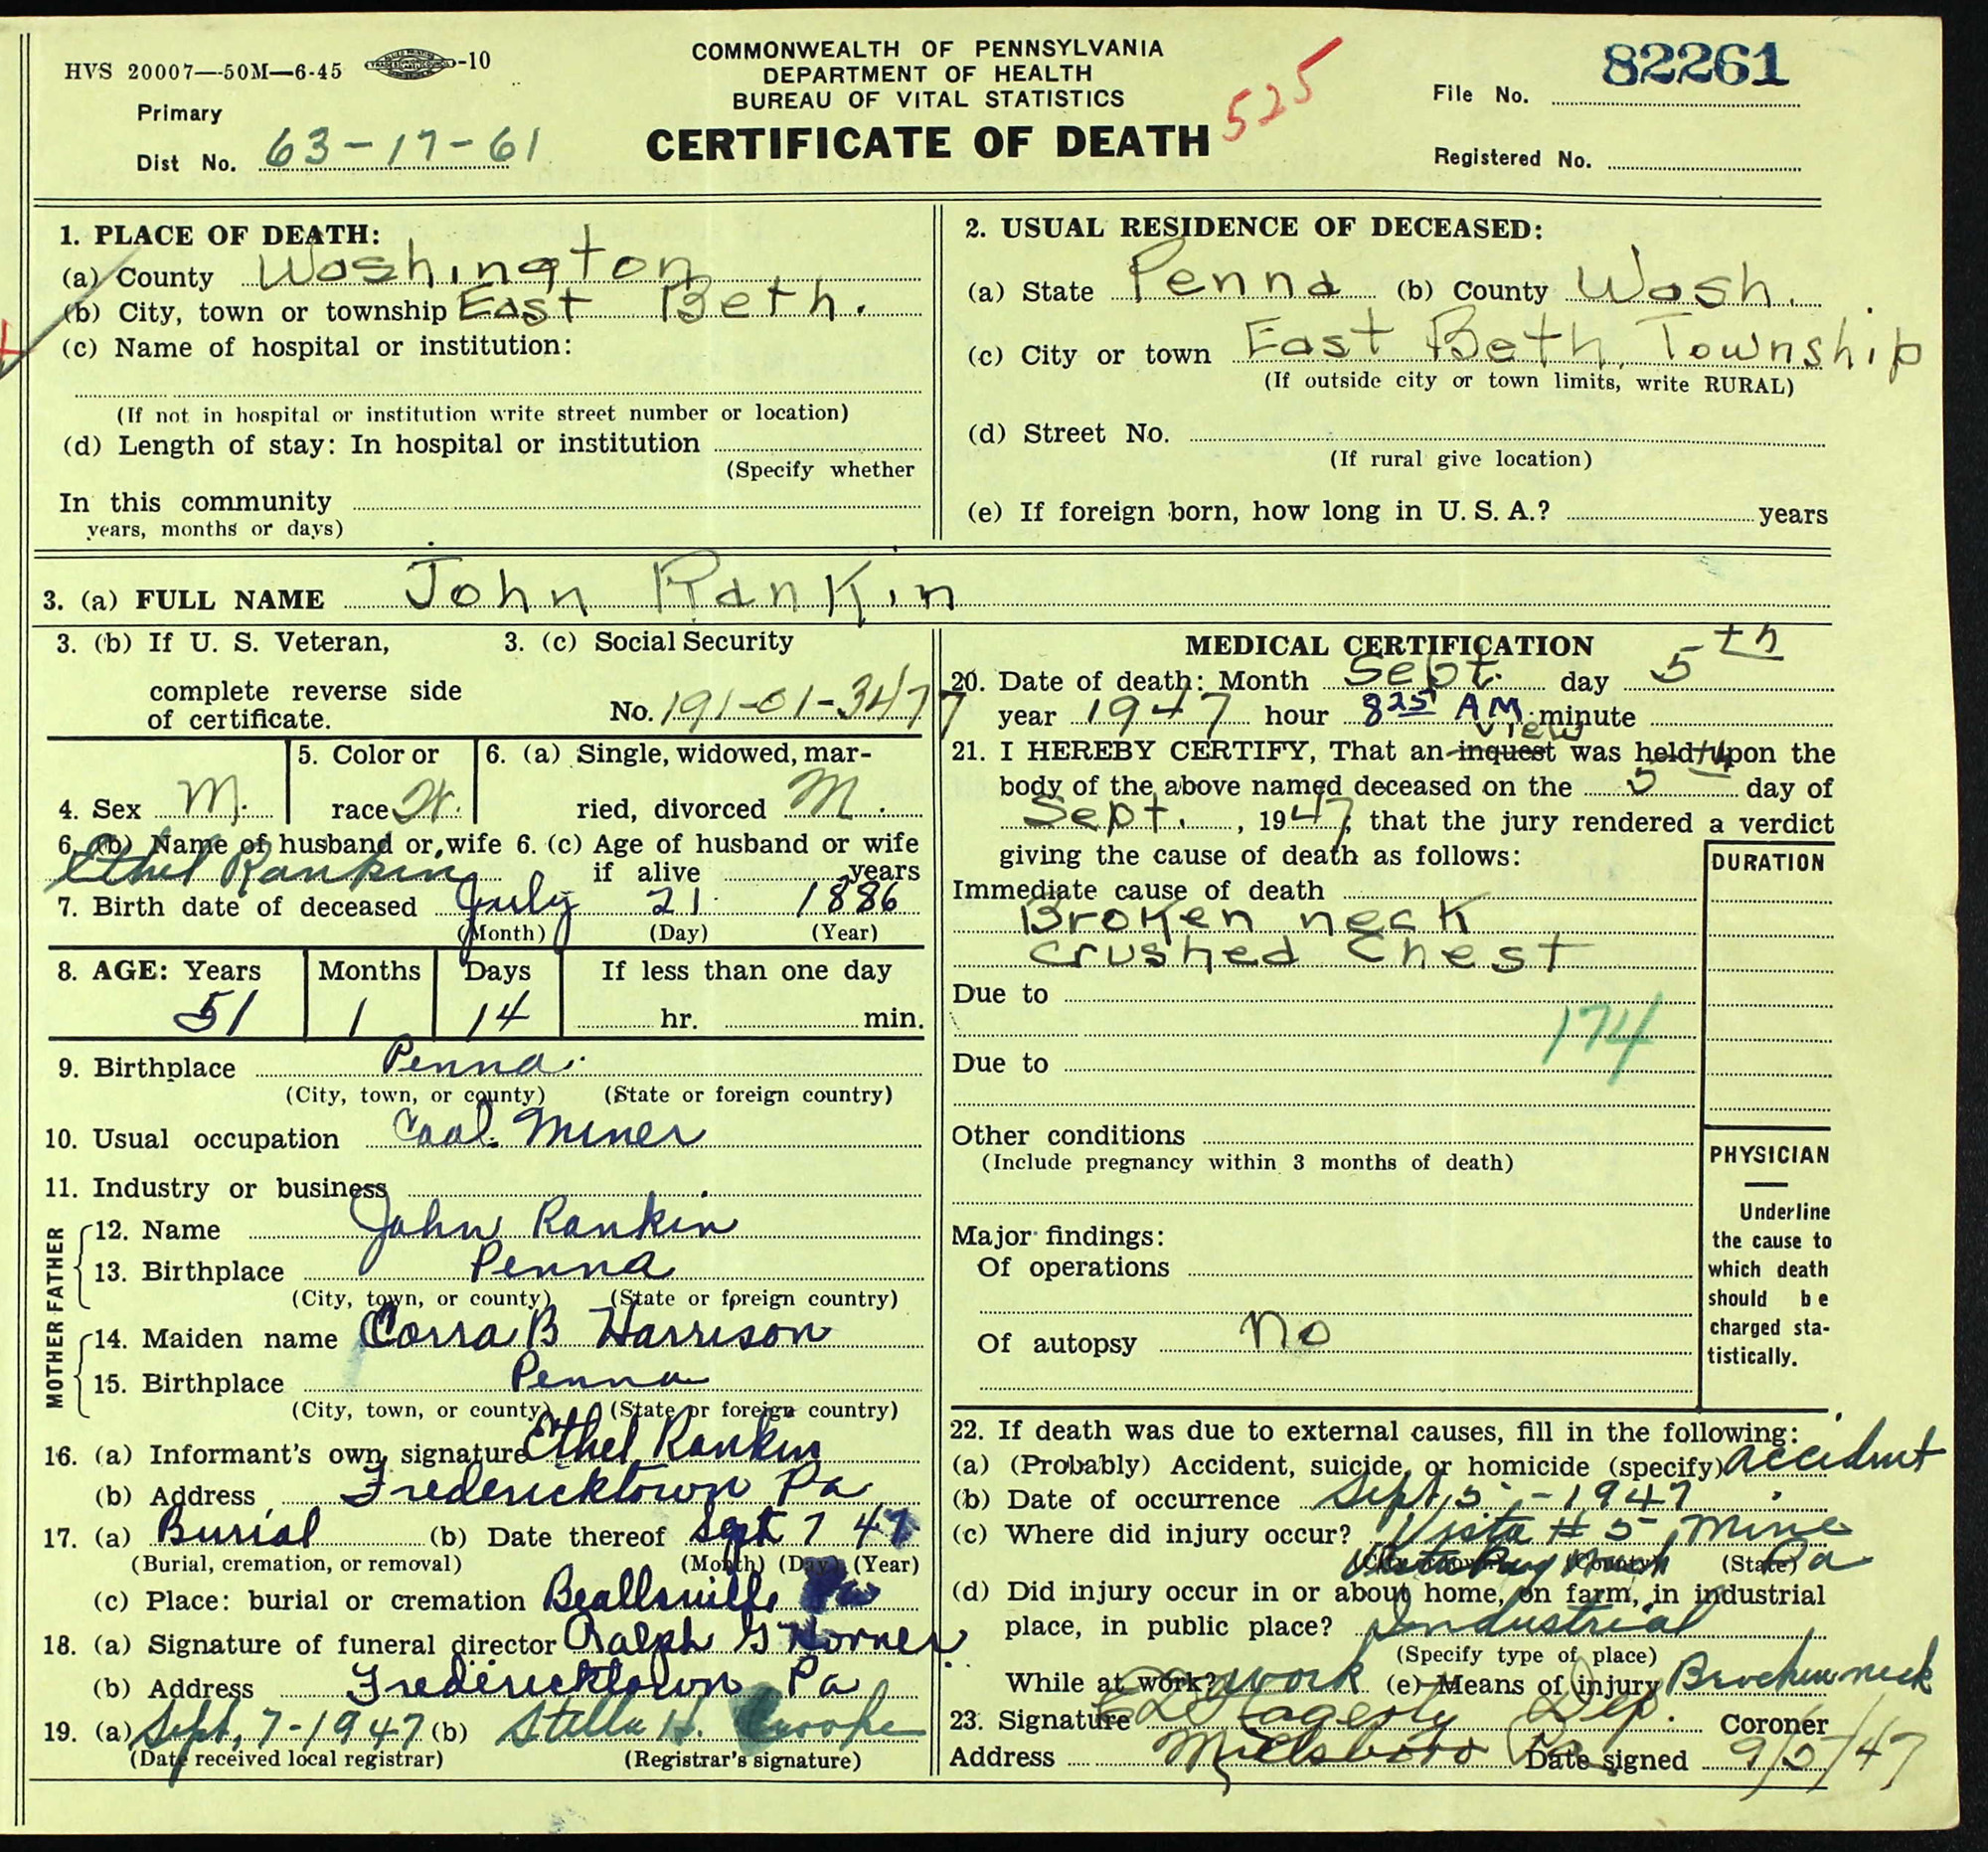 HVS 20007—50M—6-45 -10
COMMONWEALTH OF PENNSYLVANIA
DEPARTMENT OF HEALTH
BUREAU OF VITAL STATISTICS
CERTIFICATE OF DEATH
525
File No. 82261
Registered No.
Primary
Dist No. 63-17-61
1. PLACE OF DEATH:
(a) County Washington
(b) City, town or township East Beth.
(c) Name of hospital or institution:
(If not in hospital or institution write street number or location)
(d) Length of stay: In hospital or institution
(Specify whether
In this community
years, months or days)
2. USUAL RESIDENCE OF DECEASED:
(a) State Penna (b) County Wash.
(c) City or town East Beth Township
(If outside city or town limits, write RURAL)
(d) Street No.
(If rural give location)
(e) If foreign born, how long in U. S. A.? years
3. (a) FULL NAME John Rankin
3. (b) If U. S. Veteran,
complete reverse side
of certificate.
3. (c) Social Security
No. 191-01-3477
4. Sex M.
5. Color or
race W.
6. (a) Single, widowed, mar-
ried, divorced M.
6. (b) Name of husband or wife 6. (c) Age of husband or wife
Ethel Rankin if alive years
7. Birth date of deceased July 21 1886
(Month) (Day) (Year)
8. AGE: Years Months Days If less than one day
51 1 14 hr. min.
9. Birthplace Penna.
(City, town, or county) (State or foreign country)
10. Usual occupation Coal Miner
11. Industry or business
FATHER
12. Name John Rankin
13. Birthplace Penna
(City, town, or county) (State or foreign country)
MOTHER
14. Maiden name Corra B Harrison
15. Birthplace Penna
(City, town, or county) (State or foreign country)
16. (a) Informant's own signature Ethel Rankin
(b) Address Fredericktown Pa
17. (a) Burial (b) Date thereof Sept 7 47
(Burial, cremation, or removal) (Month) (Day) (Year)
(c) Place: burial or cremation Beallsville Pa
18. (a) Signature of funeral director Ralph G Horner
(b) Address Fredericktown Pa
19. (a) Sept. 7-1947 (b) Stella H.
(Date received local registrar) (Registrar's signature)
MEDICAL CERTIFICATION
20. Date of death: Month Sept. day 5th
year 1947 hour 8 25 AM minute
view
21. I HEREBY CERTIFY, That an inquest was held upon the
body of the above named deceased on the 5th day of
Sept., 1947, that the jury rendered a verdict
giving the cause of death as follows:
DURATION
Immediate cause of death
Broken neck
Crushed Chest
Due to
174
Due to
Other conditions
(Include pregnancy within 3 months of death)
Major findings:
Of operations
Of autopsy no
PHYSICIAN
Underline
the cause to
which death
should be
charged sta-
tistically.
22. If death was due to external causes, fill in the following:
(a) (Probably) Accident, suicide, or homicide (specify) accident
(b) Date of occurrence Sept, 5-1947
(c) Where did injury occur? Vista # 5 Mine
(City or town) (County) (State) Pa
(d) Did injury occur in or about home, on farm, in industrial
place, in public place? Industrial
(Specify type of place)
While at work? work (e) Means of injury Brocken neck
23. Signature Hagerty Dep. Coroner
Address Millsboro Pa Date signed 9/5/47